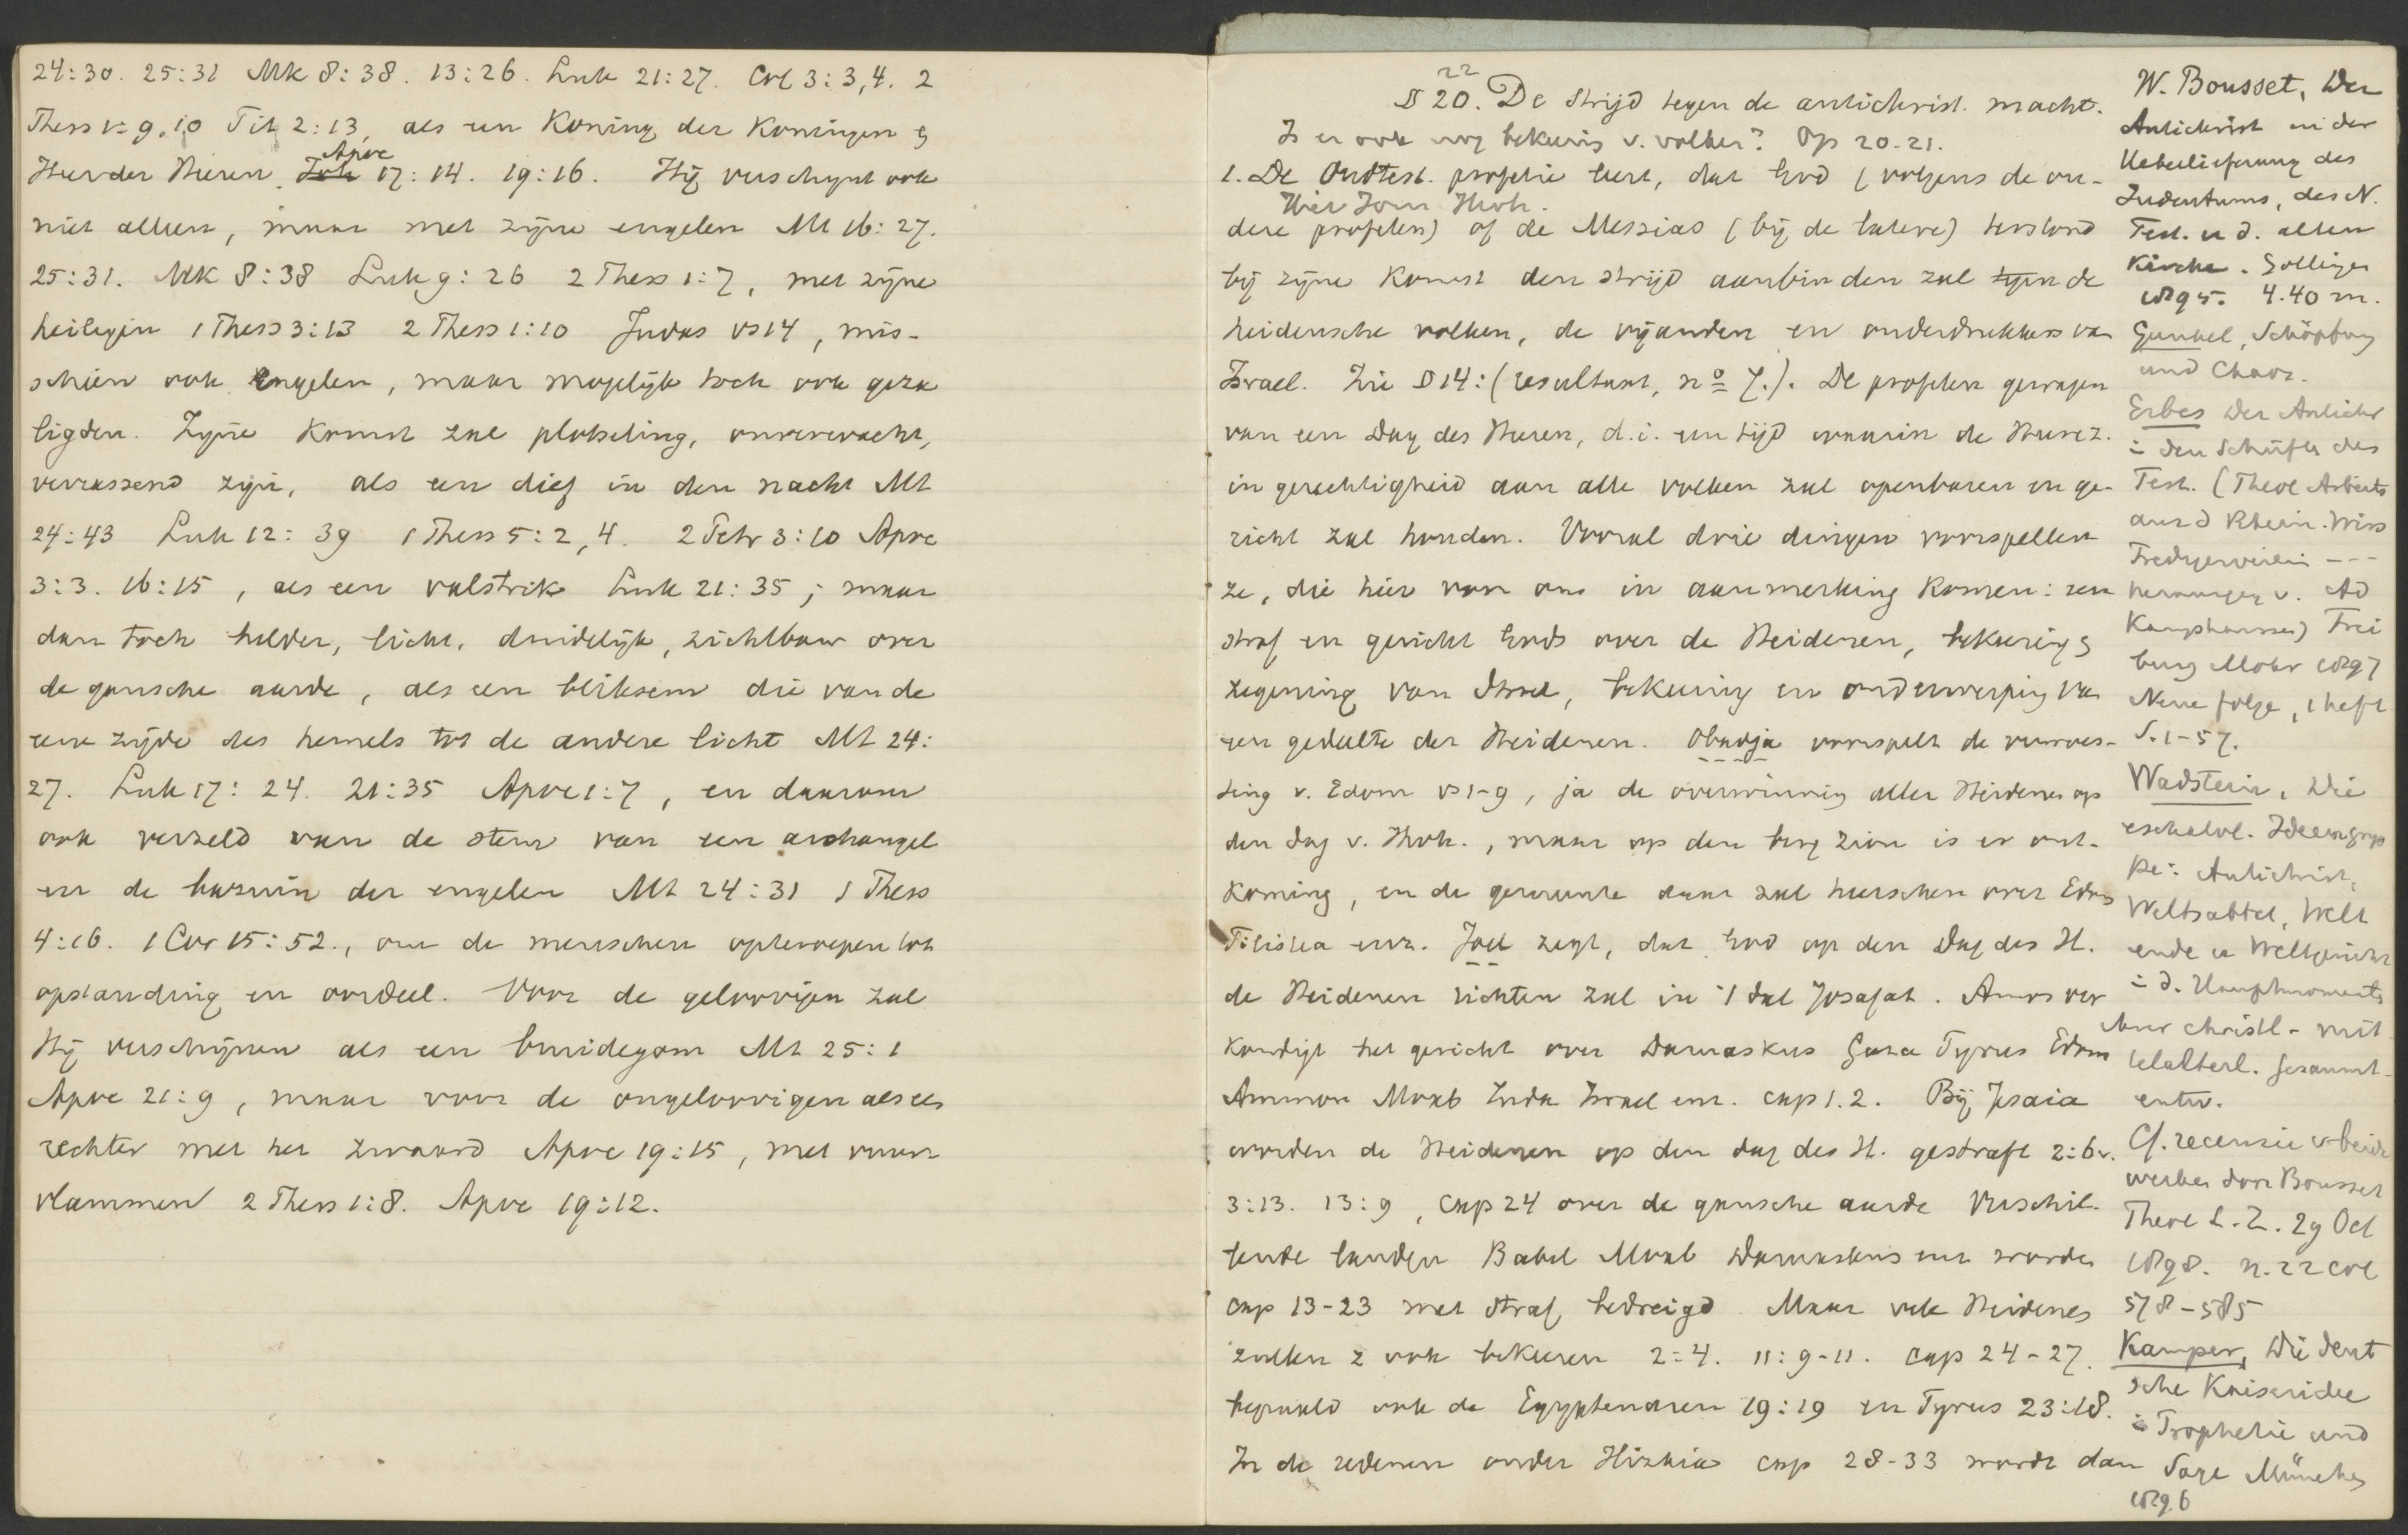 24:30. 25:31 Mk 8:38. 13:26. Luk 21:27. Col 3:3,4. 2
Thess 1:9.10 Tit 2:13, als een Koning der Koningen &
Heer der Heeren. Apoc 17:14. 19:16. Hij verschijnt ook
niet alleen, maar met zijne engelen Mt 16:27.
25:31. Mk 8:38 Luk 9:26 2 Thess 1:7, met zijne
heiligen 1 Thess 3:13 2 Thess 1:10 Judas vs 14, mis-
schien ook engelen, maar mogelijk toch ook geza
ligden. Zijne komst zal plotseling, onverwacht,
verrassend zijn, als een dief in den nacht Mt
24:43 Luk 12:39 1 Thess 5:2,4. 2 Petr 3:10 Apoc
3:3. 16:15, als een valstrik Luk 21:35; maar
dan toch helder, licht, duidelijk, zichtbaar over
de gansche aarde, als een bliksem die van de
eene zijde des hemels tot de andere licht Mt 24:
27. Luk 17:24. 21:35 Apoc 1:7, en daarom
ook verzeld van de stem van een archangel
en de bazuin der engelen Mt 24:31 1 Thess
4:16. 1 Cor 15:52., om de menschen opteroepen tot
opstanding en oordeel. Voor de geloovigen zal
Hij verschijnen als een bruidegom Mt 25:1
Apoc 21:9, maar voor de ongeloovigen als een
rechter met het zwaard Apoc 19:15, met vuur
vlammen 2 Thess 1:8. Apoc 19:12.
22
§ 20. De strijd tegen de antichrist. macht.
Is er ook nog bekeering v. volken? Op 20-21.
1. De Oudtest. profetie leert, dat God (volgens de ou-
Hier Jom Jhvh.
dere profeten) of de Messias (bij de latere) terstond
bij zijne komst den strijd aanbinden zal tegen de
heidensche volken, de vijanden en onderdrukkers van
Israel. Zie § 14: (resultant, no 7.). De profeten gewagen
van een Dag des Heeren, d.i. een tijd waarin de Heere z.
in gerechtigheid aan alle volken zal openbaren en ge-
richt zal houden. Vooral drie dingen voorspellen
ze, die hier voor ons in aanmerking komen: een
straf en gericht Gods over de Heidenen, bekeering &
zegening van Israel, bekeering en onderwerping van
een gedeelte der Heidenen. Obadja voorspelt de verwoes-
ting v. Edom vs 1-9, ja de overwinning aller Heidenen op
den dag v. Jhvh., maar op den berg Zion is er ont-
koming, en de gemeente daar zal heerschen over Edom
Filistea enz. Joel zegt, dat God op den Dag des H.
de Heidenen richten zal in 't dal Josafat. Amos ver
kondigt het gericht over Damaskus Gaza Tyrus Edom
Ammon Moab Juda Israel enz. cap 1.2. Bij Jesaia
worden de Heidenen op den dag des H. gestraft 2:6v.
3:13. 13:9, cap 24 over de gansche aarde Verschil-
lende landen Babel Moab Damaskus enz worden
cap 13-23 met straf bedreigd. Maar vele Heidenen
zullen z ook bekeeren 2:4. 11:9-11. cap 24-27.
bepaald ook de Egyptenaren 19:19 en Tyrus 23:18.
In de redenen onder Hizkia cap 28-33 wordt dan
W. Bousset, Der
Antichrist in der
Ueberlieferung des
Judentums, des N.
Test. u d. alten
Kirche. Göttingen
1895. 4.40 m.
Gunkel, Schöpfung
und Chaos.
Erbes Der Antichr
i den Schriften des
Test. (Theol Arbeits
aus d Rhein. Wiss
Predigerverein ---
herausgeg v. Ad
Kamphausen) Frei
burg Mohr 1897
Neue folge, 1 heft
S. 1-57.
Wadstein, Die
eschatol. Ideengrup
pe: Antichrist,
Weltsabbat, Welt
ende u Weltgericht
i d. Hauptmomente
ihrer christl- mit
telalterl. gesammt-
entw.
Cf. recensie v beide
werken door Bousset
Theol L.Z. 29 Oct
1898. n. 22 col
578-585
Kampers, Die deut
sche Kaiseridee
i Prophetie und
Sage München
1896